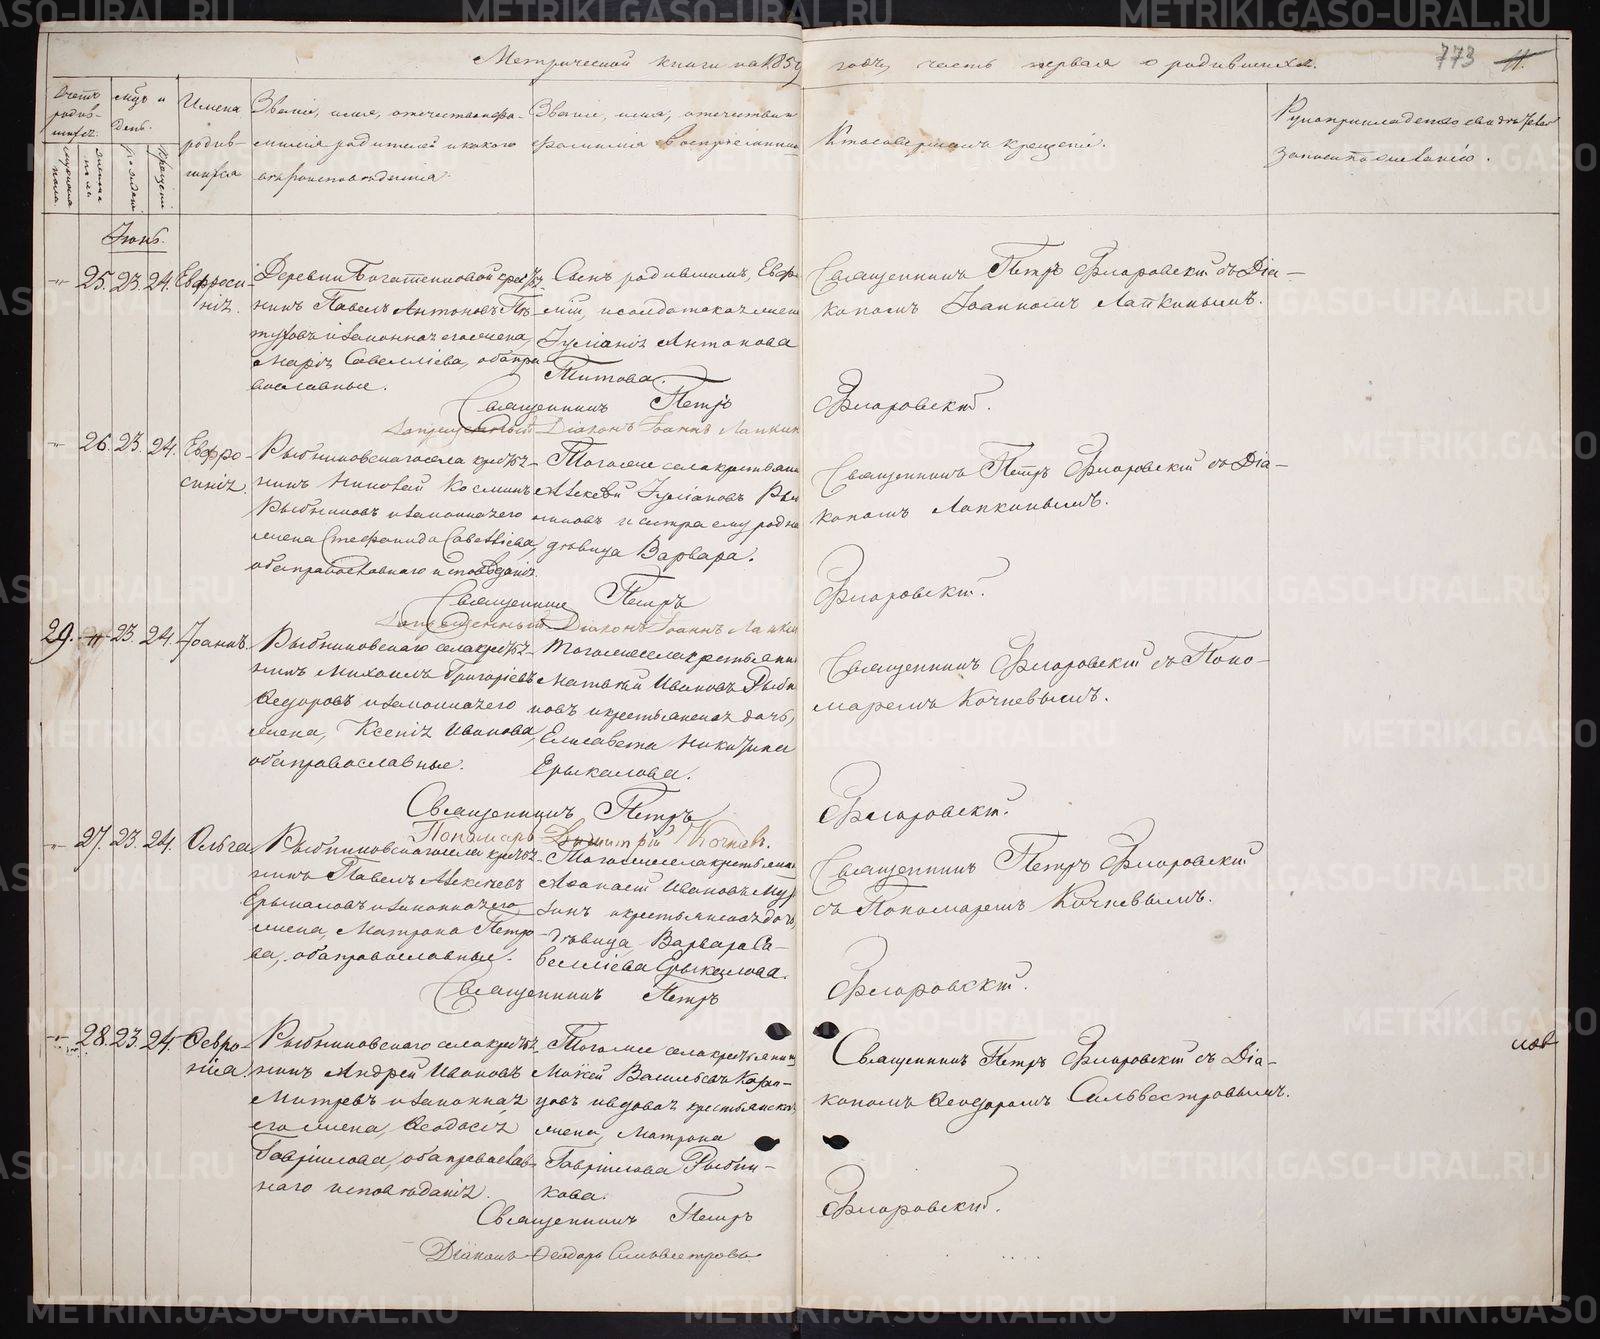 Метрической книги на 1859 годъ, часть первая о родившихся.
773 11.
Счетъ родив-шихся.
мужеска пола
женска полы
Мѣсяцъ и день.
рожденія
крещенія
Имена родив-шихся
Званіе, имя, отчество и фа-
милія родителей и какого
вѣроисповѣданія.
Званіе, имя, отчество и
фамилія воспріемниковъ
Кто совершалъ крещеніе.
Рукоприкладство свидѣтелей
записи по желанію.
Іюнь.
25. 23. 24. Евфроси-
нія.
Деревни Богатенковой кресть-
нинъ Павелъ Антоновъ Пѣ-
туховъ и законная его жена,
Марія Савелліева, оба пра-
вославные.
Сынъ родившимъ, Евфи-
мій, и солдатская жена
Іуліанія Антонова
Титова.
Священникъ Петръ Флоровскій съ Діа-
кономъ Іоанномъ Лапкинымъ.
Священникъ Петръ Флоровскій.
Запрещенный Діаконъ Іоаннъ Лапкин
26. 23. 24. Евфро-
синія.
Рыбниковскаго села кресть-
нинъ Николай Космин
Рыбниковъ и законная его
жена Стефанида Савелліева,
оба православнаго исповѣданія.
Того же села крестьяни
Алексѣй Іуліановъ Рыб
никовъ и сестра ему родна
дѣвица Варвара.
Священникъ Петръ Флоровскій съ Діа-
кономъ Лапкинымъ.
Священникъ Петръ Флоровскій.
Запрещенный Діаконъ Іоаннъ Лапкин
29. 23. 24. Іоаннъ.
Рыбниковскаго села кресть-
нинъ Михаилъ Григоріевъ
Ѳедоровъ и законная его
жена, Ксенія Иванова,
оба православные.
Того же села крестьянин
Матвѣй Ивановъ Рыбни
ковъ и крестьянская дочь,
Елисавета Никитина
Ерыкалова.
Священникъ Флоровскій съ Поно-
маремъ Кочневымъ.
Священникъ Петръ Флоровскій.
Пономарь Димитрій Кочневъ.
27. 23. 24. Ольга
Рыбниковскаго села кресть-
нинъ Павелъ Алексѣевъ
Ерыкаловъ и законная его
жена, Матрона Петро-
ва, оба православные.
Того же села крестьянин
Аѳанасій Ивановъ
и крестьянская дочь,
дѣвица Варвара Са-
велліева Ерыкалова.
Священникъ Петръ Флоровскій
съ Пономаремъ Кочневымъ.
Священникъ Петръ Флоровскій.
28. 23. 24. Ѳевро-
нія.
Рыбниковскаго села кресть-
нинъ Андрей Ивановъ
Митревъ и законная
его жена, Ѳеодосія
Гавріилова, оба православ-
наго исповѣданія.
Того же села крестьянинъ
Мойсей Васильевъ Казан-
цовъ и вдовая крестьянская
жена, Матрона
Гавріилова Рыбни-
кова.
Священникъ Петръ Флоровскій съ Діа-
кономъ Ѳеодоромъ Сильвестровымъ.
Священникъ Петръ Флоровскій.
Діаконъ Ѳеодоръ Сильвестровъ.
METRIKI.GASO-URAL.RU